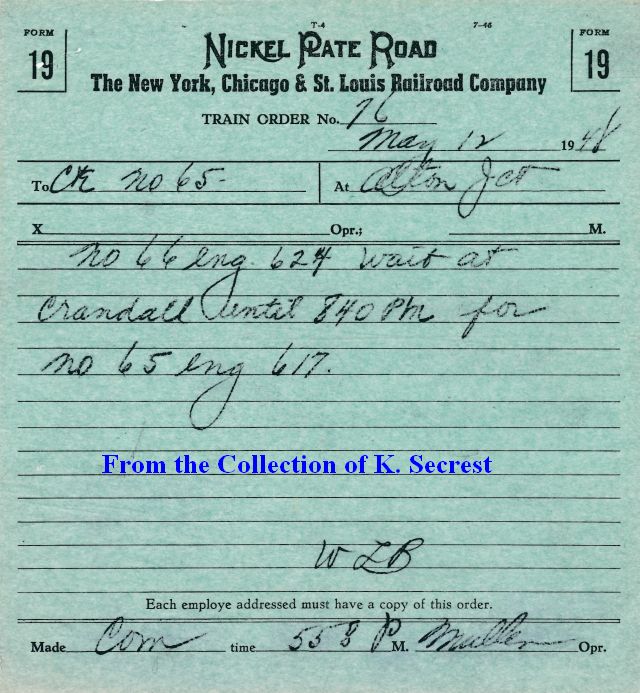 FORM 19
T-4
7-46
FORM 19
NICKEL PLATE ROAD
The New York, Chicago & St. Louis Railroad Company
TRAIN ORDER No. 76
May 12 1948
To C&E No 65- At Alton Jct
X Opr.; M.
No 66 eng. 624 wait at
Crandall until 840 PM for
no 65 eng 617.
From the Collection of K. Secrest
W L B
Each employe addressed must have a copy of this order.
Made Com time 558 P M. Mullen Opr.